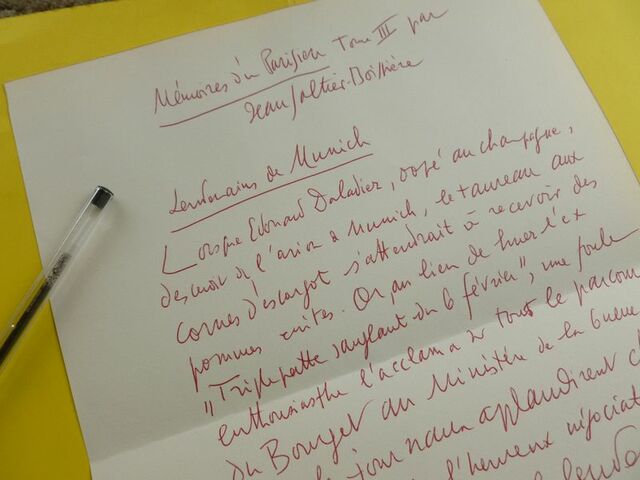 Mémoires d'un Parisien Tome III par
Jean Galtier-Boissière
Lendemains de Munich
Lorsque Edouard Daladier, dopé au champagne,
descend de l'avion de Munich, le taureau aux
cornes d'escargot s'attendrait à recevoir des
pommes cuites. Or au lieu de huer l'ex
"Triplepatte sanglant du 6 février", une foule
enthousiaste l'acclama sur tout le parcours
du Bourget au Ministère de la Guerre
journaux applaudirent
d'heureux négociat